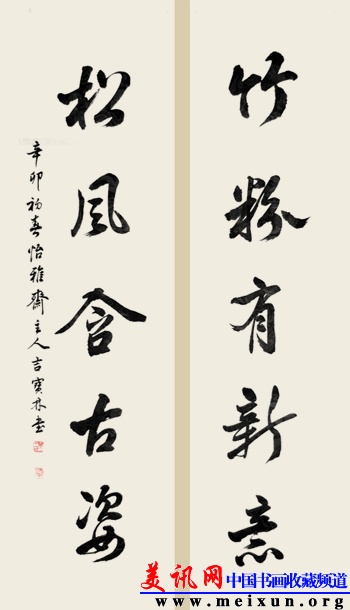 竹粉有新意
松風含古姿
辛卯初春怡雅齋主人吉實林書
美讯网 中国书画收藏频道
www.meixun.org